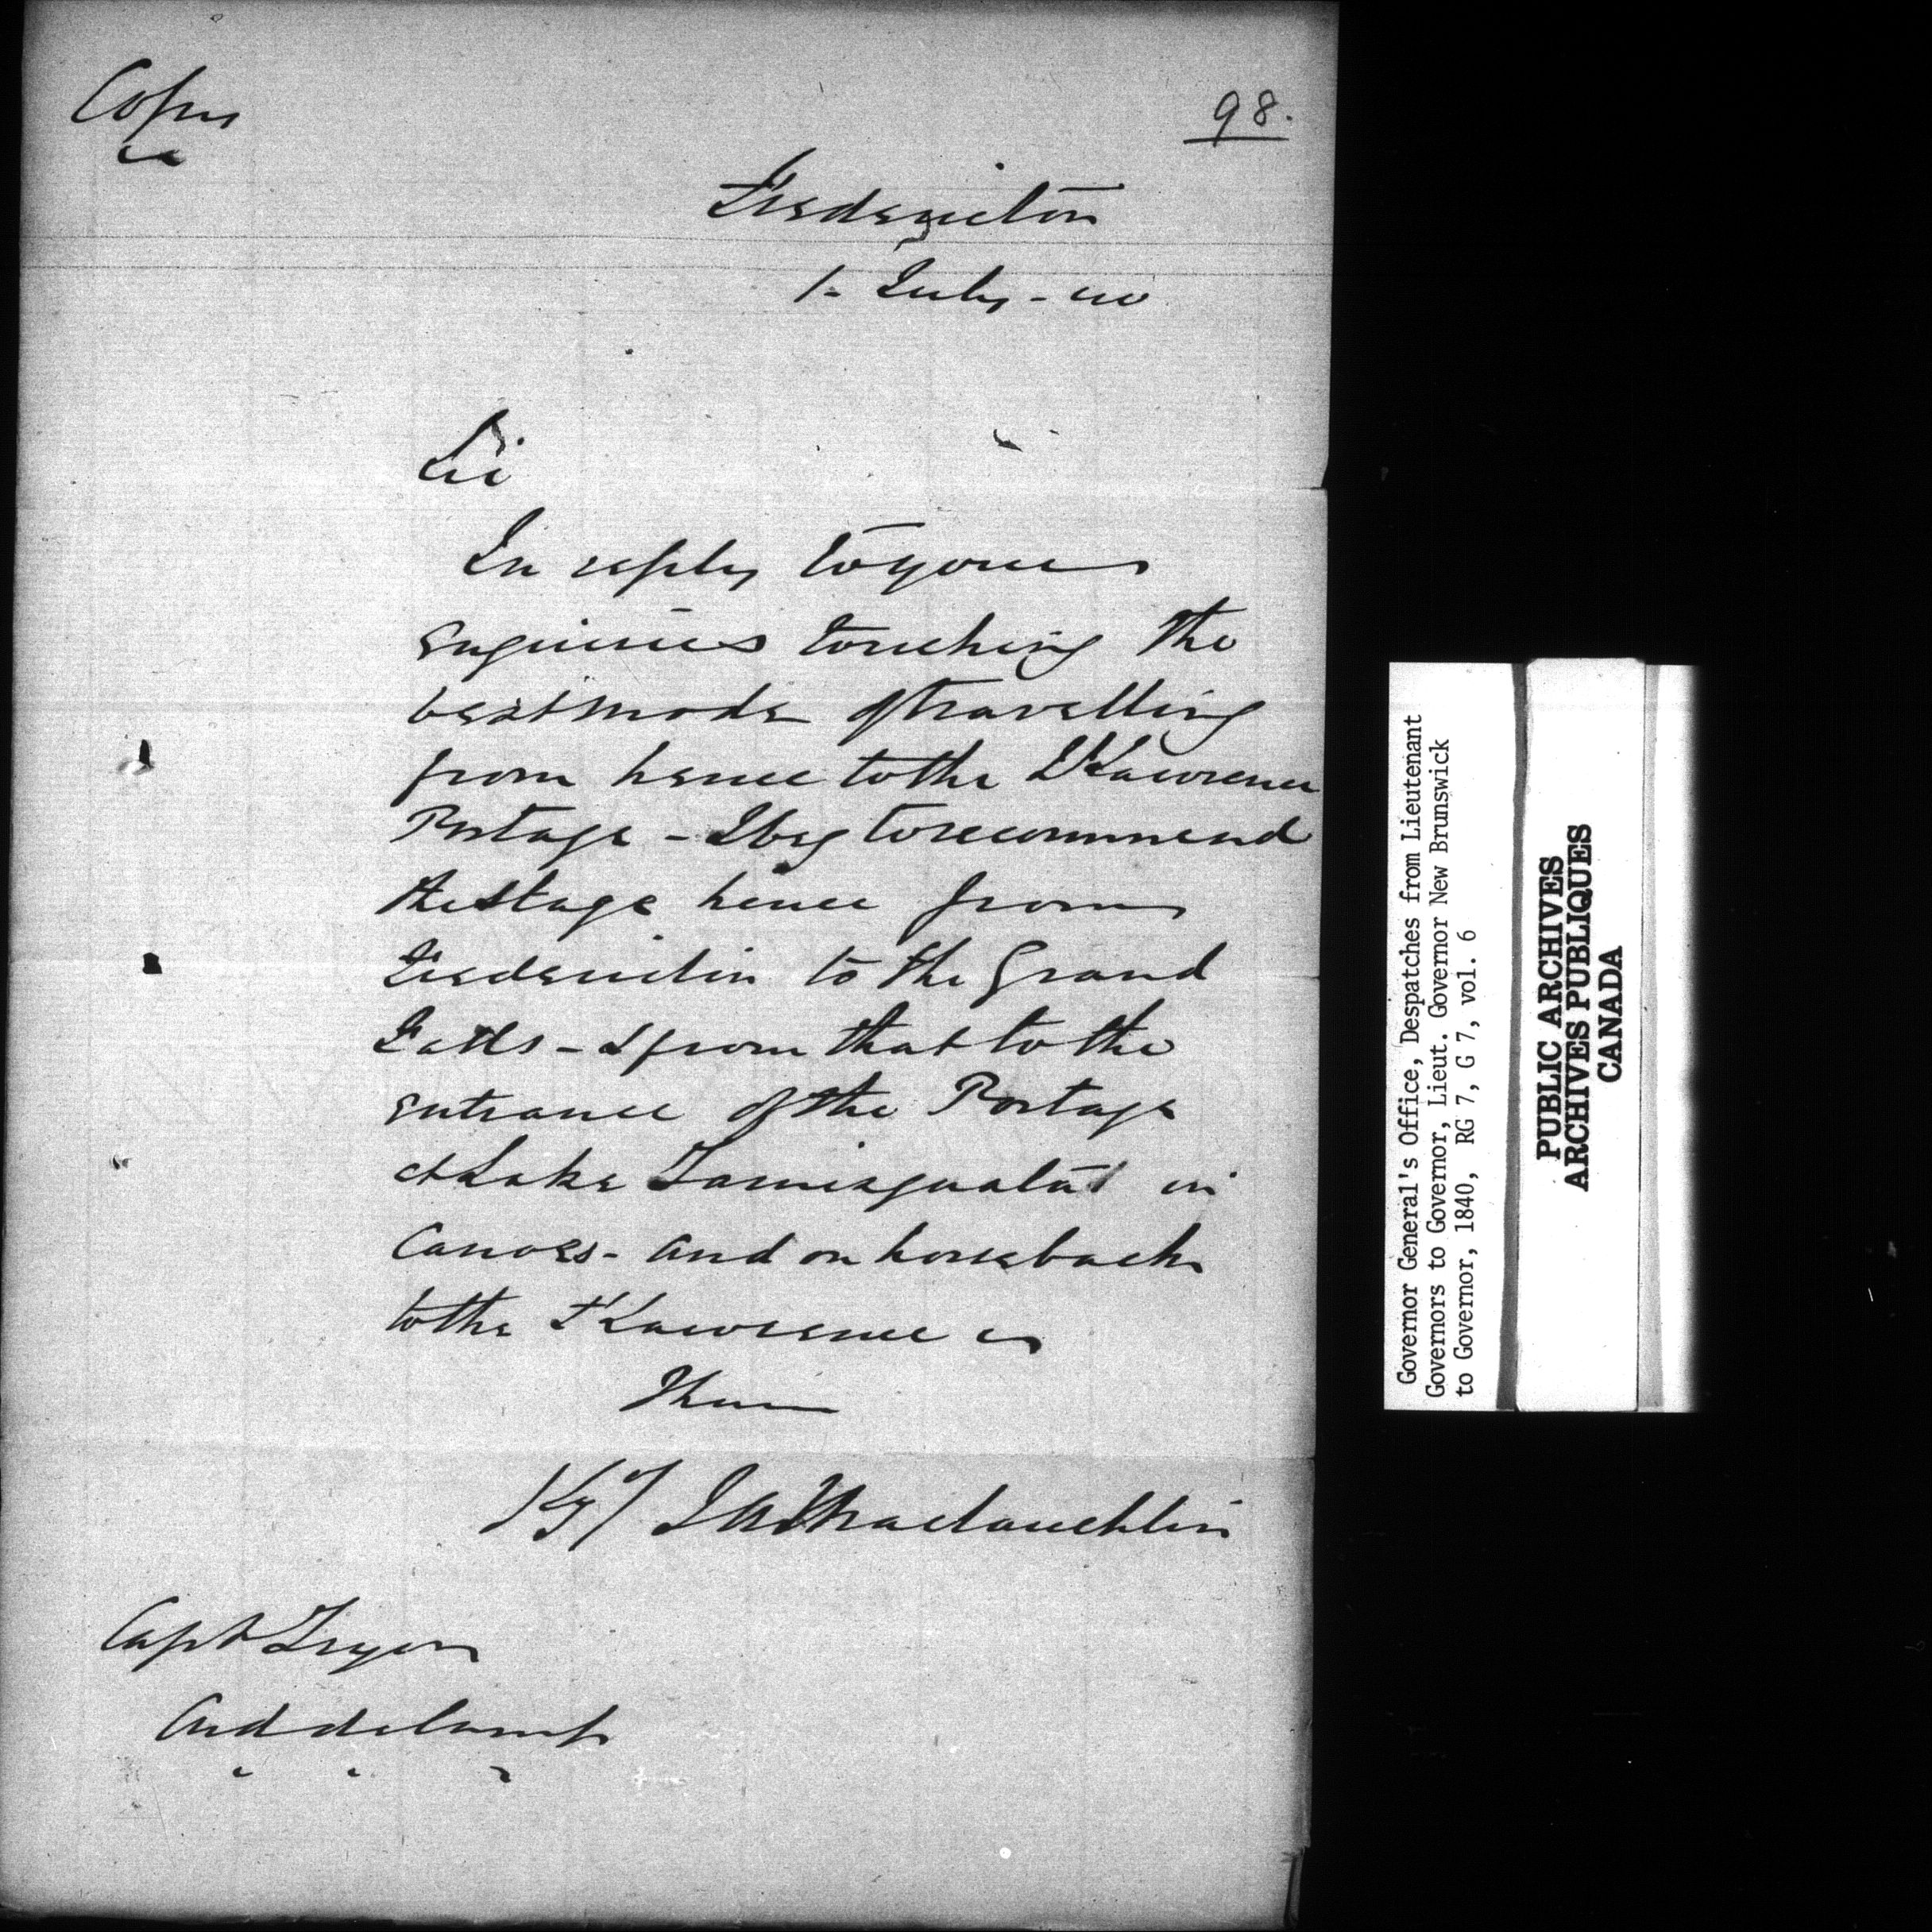 Copy
98.
Fredericton
1- July - 40
Sir
In reply to your
enquiries touching the
best mode of travelling
from hence to the St Lawrence
Portage - I beg to recommend
the stage hence from
Fredericton to the Grand
Falls - & from that to the
entrance of the Portage
at Lake Tamisquata in
Canoes - and on horseback
to the St Lawrence
I have
J A Maclauchlin
Capt Tryon
Aid de Camp
Governor General's Office, Despatches from Lieutenant
Governors to Governor, Lieut. Governor New Brunswick
to Governor, 1840, RG 7, G 7, vol. 6
PUBLIC ARCHIVES
ARCHIVES PUBLIQUES
CANADA